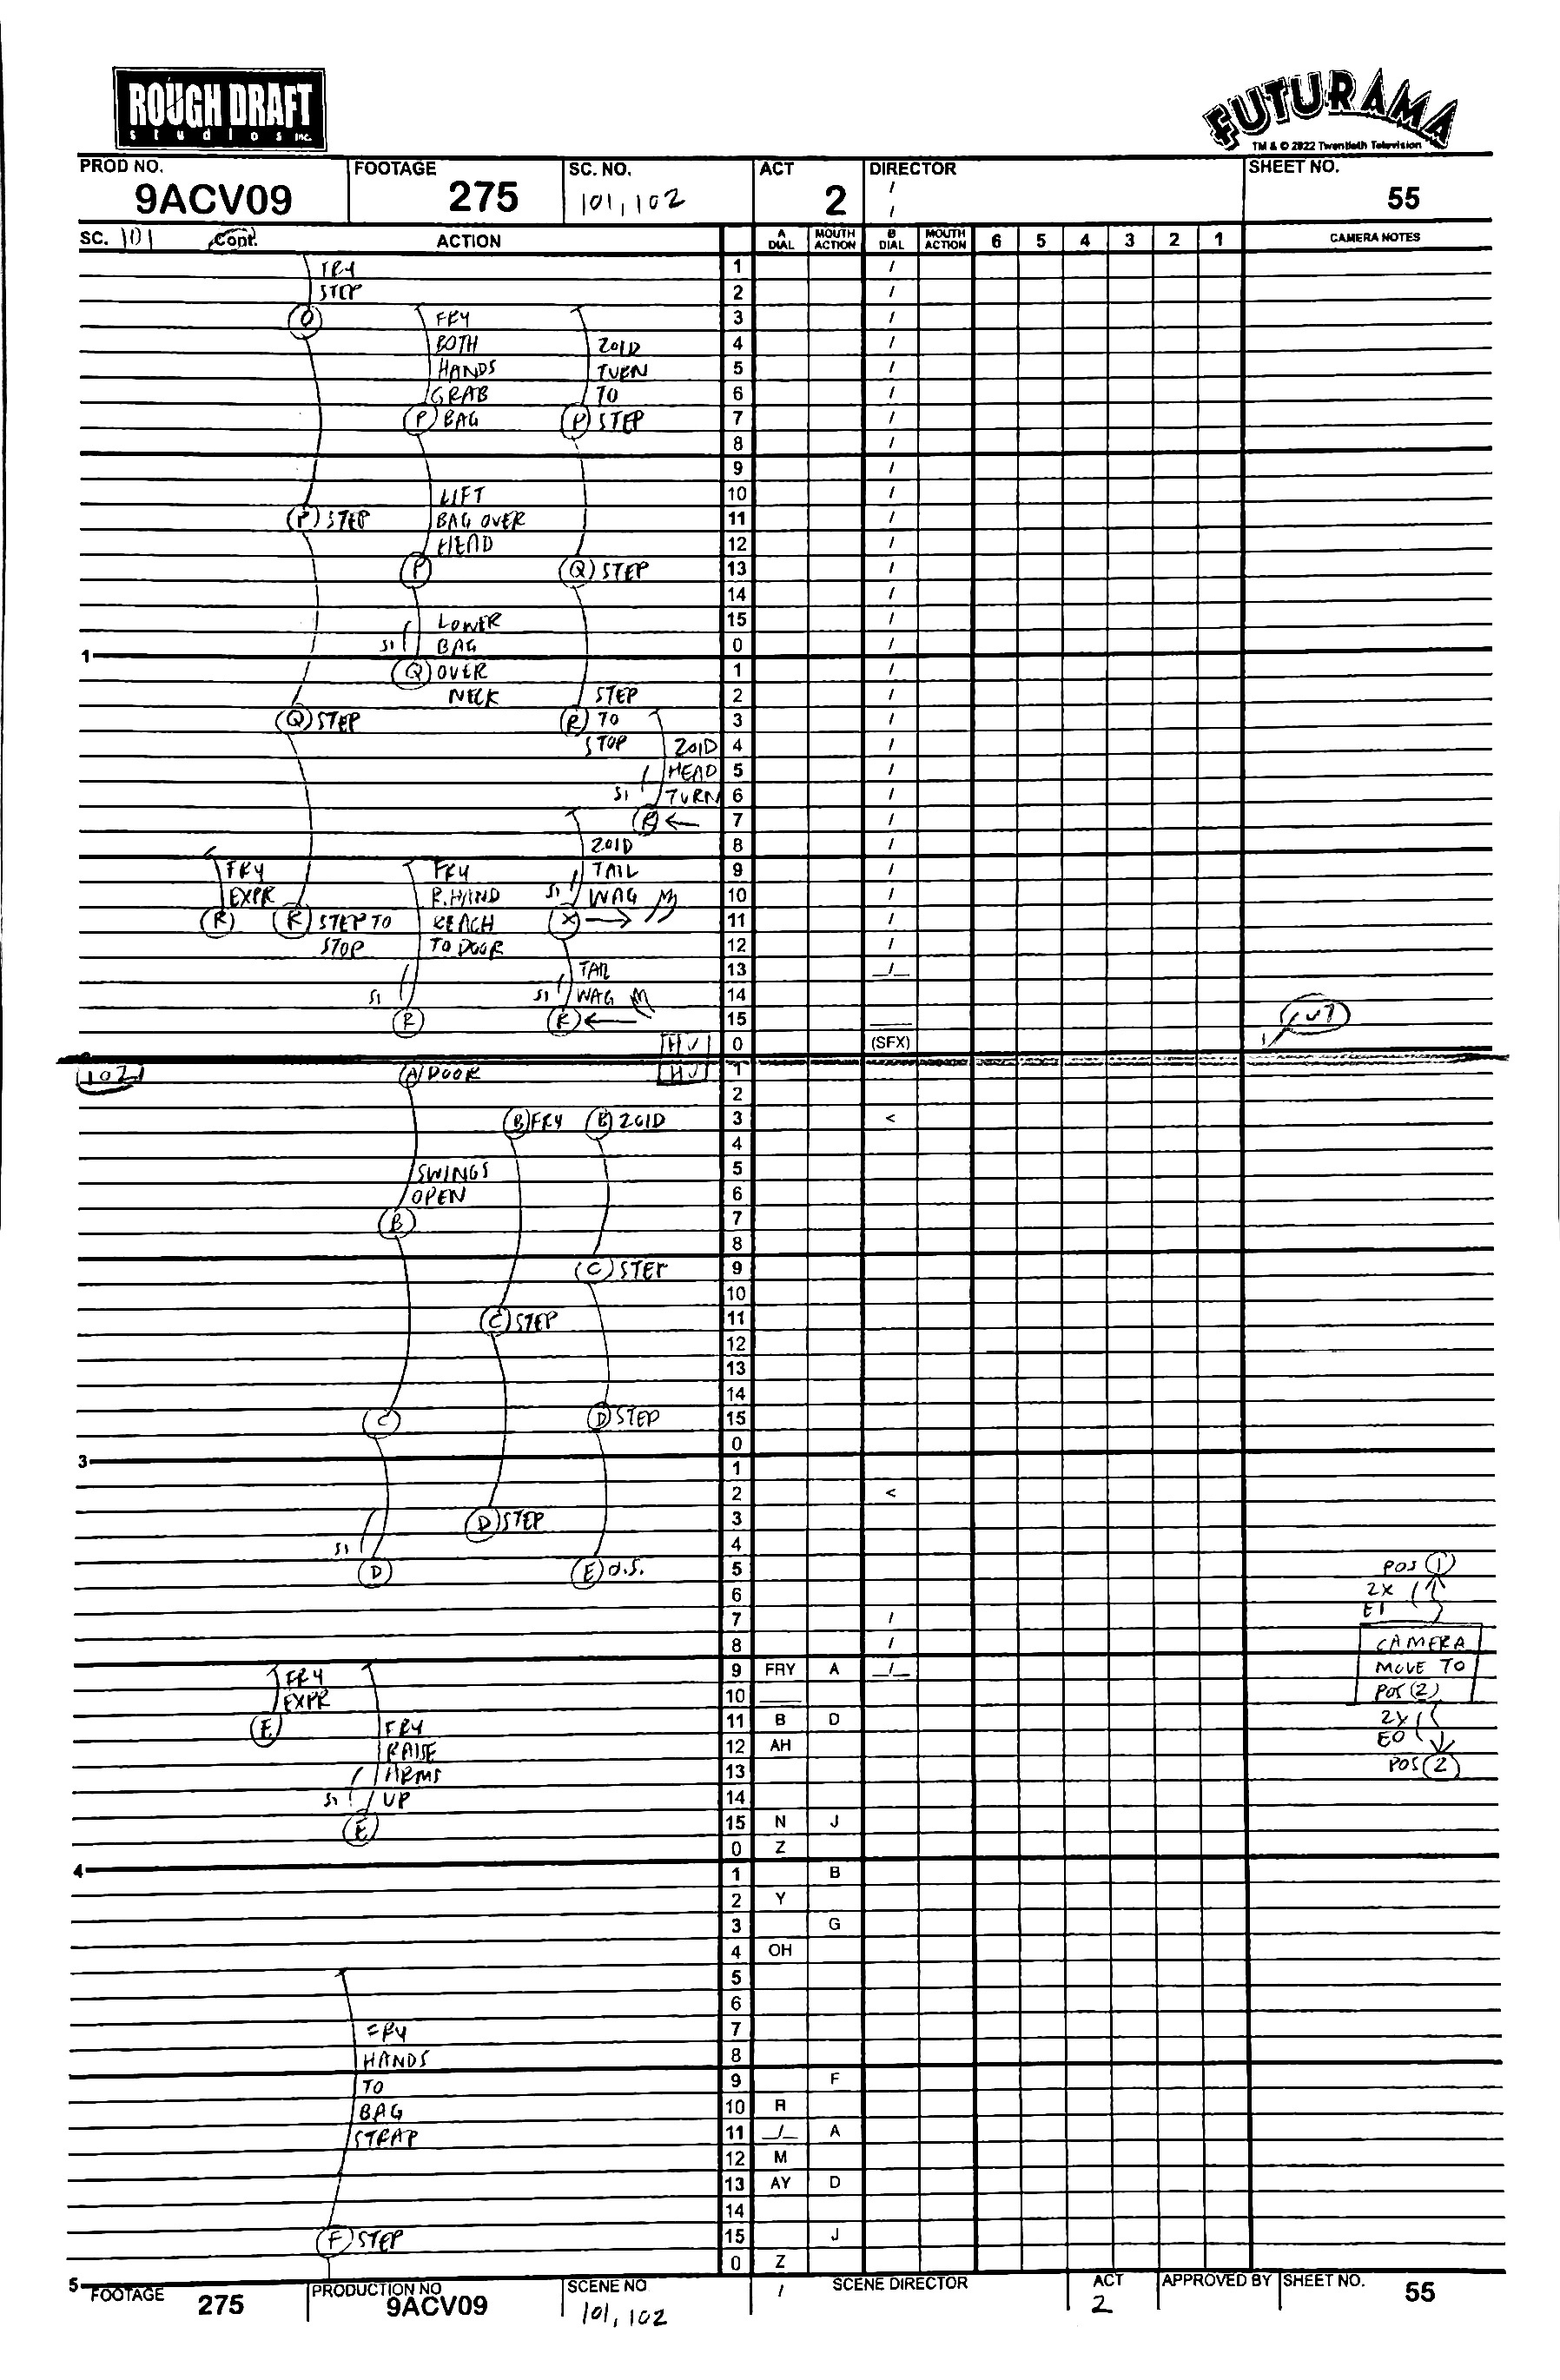 ROUGH DRAFT
studios inc.
FUTURAMA
TM & © 2022 Twentieth Television
PROD NO. 9ACV09 FOOTAGE 275 SC. NO. 101, 102 ACT 2 DIRECTOR / / SHEET NO. 55
SC. 101 Cont. ACTION A DIAL MOUTH ACTION B DIAL MOUTH ACTION 6 5 4 3 2 1 CAMERA NOTES
FRY 1 /
STEP 2 /
O FRY 3 /
BOTH ZOID 4 /
HANDS TURN 5 /
GRAB TO 6 /
P BAG P STEP 7 /
8 /
9 /
LIFT 10 /
P STEP BAG OVER 11 /
HEAD 12 /
P Q STEP 13 /
14 /
LOWER 15 /
S1 BAG 0 /
1
Q OVER 1 /
NECK STEP 2 /
Q STEP R TO 3 /
STOP ZOID 4 /
HEAD 5 /
S1 TURN 6 /
R ← 7 /
ZOID 8 /
FRY FRY TAIL 9 /
EXPR R. HAND S1 WAG 10 /
R R STEP TO REACH X → 11 /
STOP TO DOOR 12 /
TAIL 13 /
S1 S1 WAG 14
R R ← 15
HU 0 (SFX) CUT
102 A DOOR HU 1
2
B FRY B ZOID 3 <
4
SWINGS 5
OPEN 6
B 7
8
C STEP 9
10
C STEP 11
12
13
14
C D STEP 15
0
3
1
2 <
D STEP 3
S1 4
D E O.S. 5 POS 1
6 2X
7 / EI
8 / CAMERA
FRY 9 FRY A / MOVE TO
EXPR 10 POS (2)
E FRY 11 B D 2X
RAISE 12 AH EO
ARMS 13 POS 2
S1 UP 14
E 15 N J
0 Z
4
1 B
2 Y
3 G
4 OH
5
6
FRY 7
HANDS 8
TO 9 F
BAG 10 R
STRAP 11 / A
12 M
13 AY D
14
F STEP 15 J
0 Z
5
FOOTAGE 275 PRODUCTION NO 9ACV09 SCENE NO 101, 102 / SCENE DIRECTOR ACT 2 APPROVED BY SHEET NO. 55